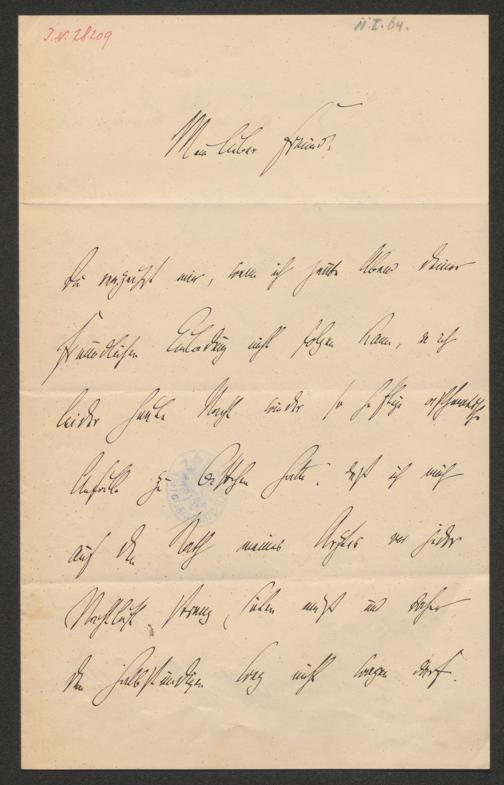 I.N. 28209
11.I.64.
Mein lieber Freund!
Du verzeihst mir, wenn ich heute Abend deiner
freundlichen Einladung nicht folgen kann, da ich
leider heute Nacht wieder so heftige asthmatische
Anfälle zu bestehen hatte, daß ich mich
auf den Rath meines Arztes vor jeder
Nachtluft streng hüten muß und daher
den halbstündigen Weg nicht wagen darf.